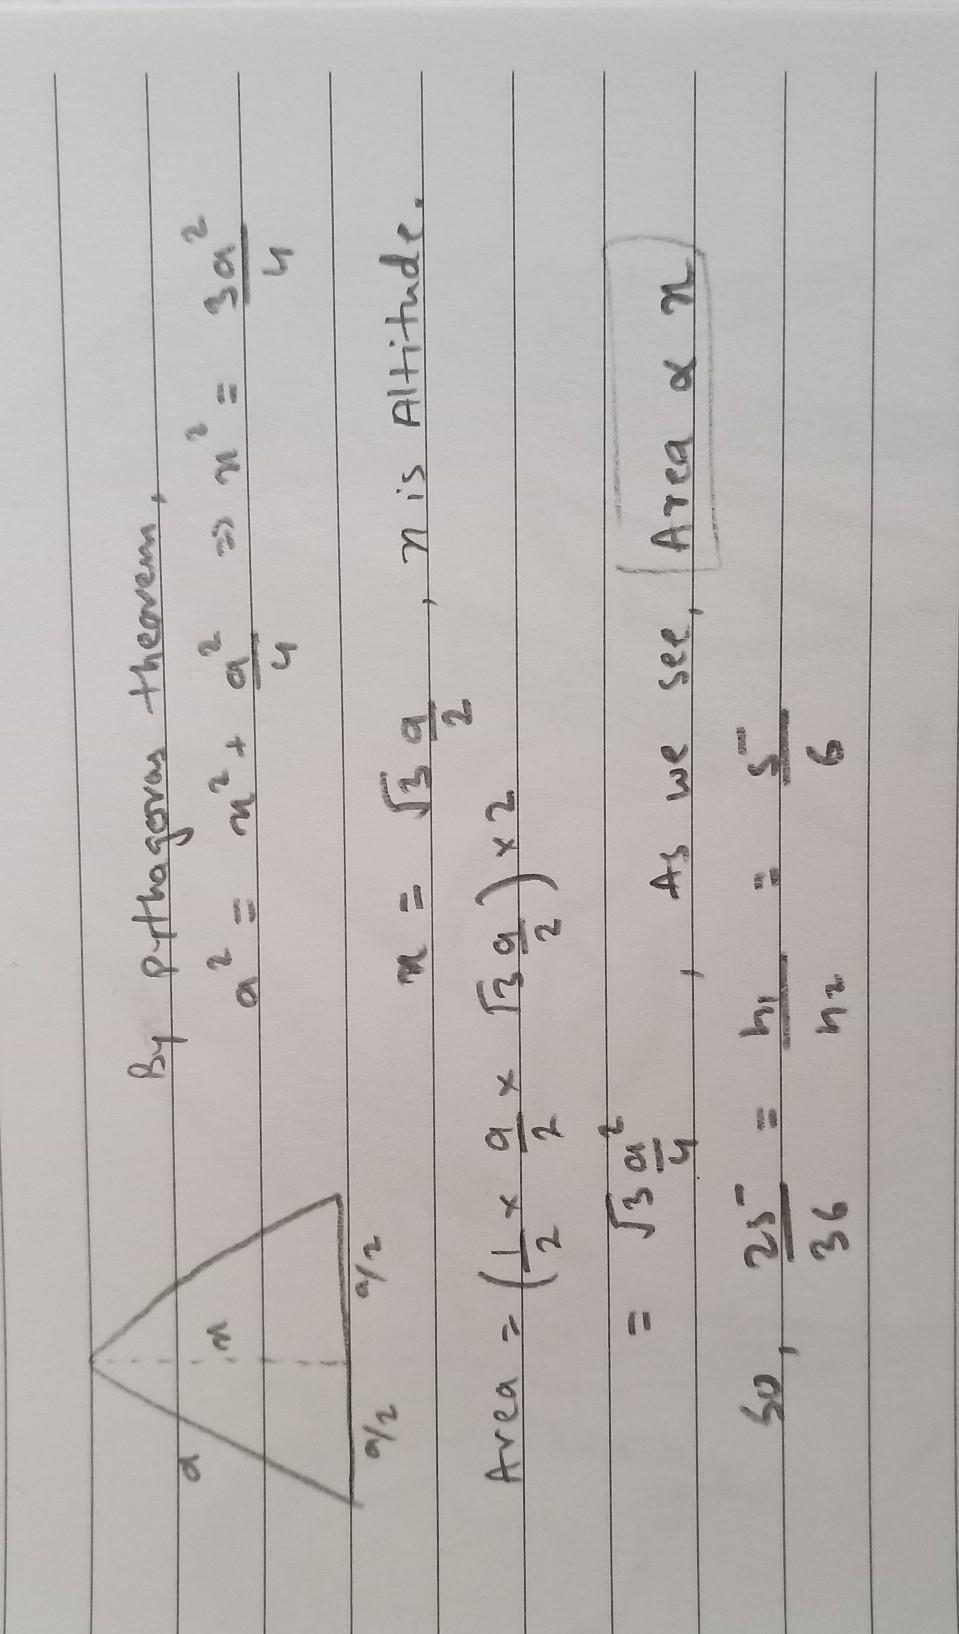 By Pythagoras theorem,
a² = x² + a²/4 ⇒ x² = 3a²/4
a
x
a/2 a/2
x = √3 a/2 , x is Altitude.
Area = (1/2 × a/2 × √3 a/2) × 2
= √3 a²/4 , As we see, Area ∝ x
So, 25/36 = h₁/h₂ = 5/6